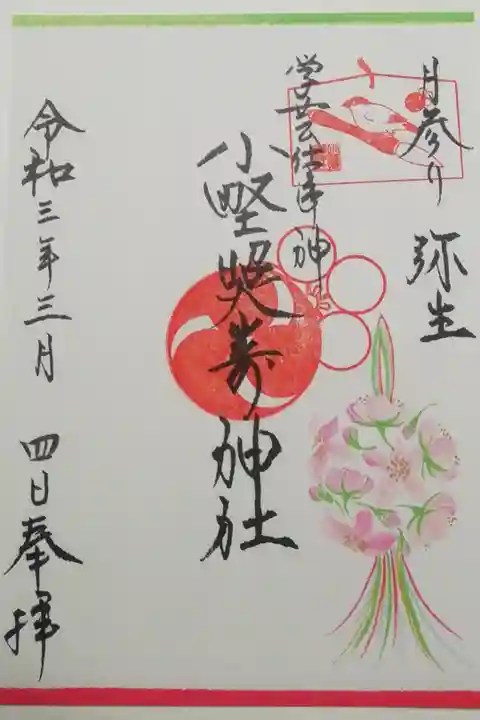 月参り 弥生
学芸仕事神
小野照崎神社
令和三年三月 四日奉拝